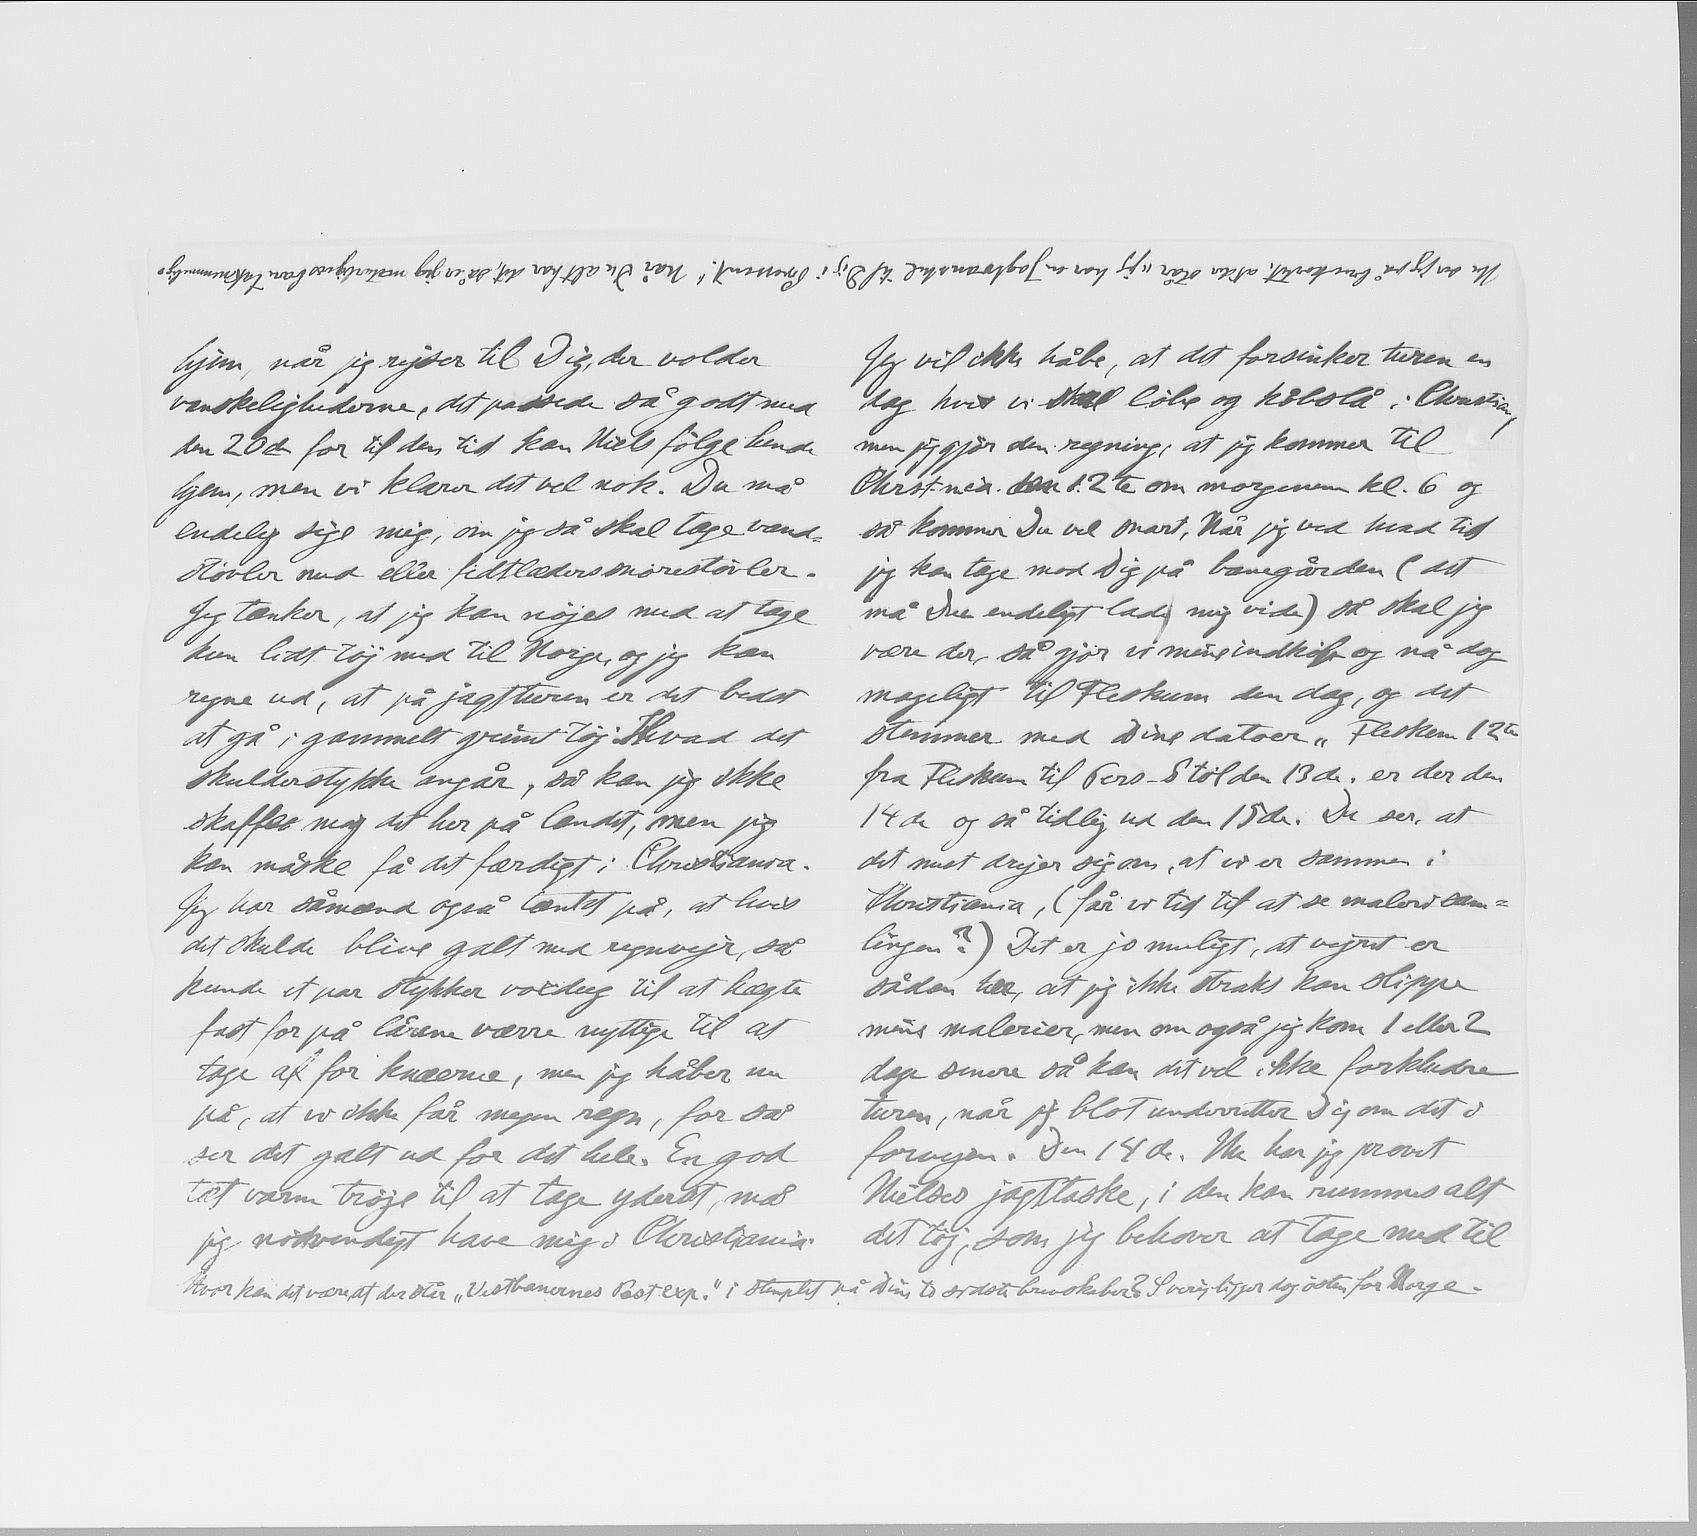 Nu ser jeg på brevkortet, at der står „jeg har en Jagtvæske til Dig i Present." Når Du alt har det, så er jeg naturligvis bare taknemmelig.
hjem, når jeg rejser til Dig, der volder
vanskelighederne, det passede så godt med
den 20de for til den tid kan Niels følge hende
hjem, men vi klarer det vel nok. Du må
endelig sige mig, om jeg så skal tage vand=
støvler med eller fedtlæders snørestøvler.
Jeg tænker, at jeg kan nøjes med at tage
kun lidt tøj med til Norge, og jeg kan
regne ud, at på jagtturen er det bedst
at gå i gammelt grimt tøj. Hvad det
skulderstykke angår, så kan jeg ikke
skaffe mig det her på landet, men jeg
kan måske få det færdigt i Christiania.
Jeg har såmænd også tænkt på, at hvis
det skulde blive galt med regnvejr, så
kunde et par stykker voxdug til at hægte
fast for på lårene værre nyttige til at
tage af for knæerne, men jeg håber nu
på, at vi ikke får megen regn, for så
ser det galt ud for det hele. En god
tæt varm trøje til at tage yderst, må
jeg nødvendigt have mig i Christiania.
Jeg vil ikke håbe, at det forsinker turen en
dag hvis vi skal løbe og købslå i Christiania,
men jeg gjør den regning, at jeg kommer til
Christ-nia. den 12te om morgenen kl. 6 og
så kommer Du vel snart, Når jeg ved hvad tid
jeg kan tage mod Dig på banegården (det
må Du endeligt lade mig vide) så skal jeg
være der, så gjør vi mine indkøb og nå dog
mageligt til Fleskum den dag, og det
stemmer med Dine datoer „Fleskum 12te
fra Fleskum til Fers-Støl den 13de. er der den
14de og så tidlig ud den 15de. Du ser, at
det mest drejer sig om, at vi er sammen i
Christiania, (får vi tid til at se malerisam=
lingen?) Det er jo muligt, at vejret er
sådan her, at jeg ikke straks kan slippe
mine malerier, men om også jeg kom 1 eller 2
dage senere så kan det vel ikke forkludre
turen, når jeg blot underretter Dig om det i
forvejen. Den 14de. Nu har jeg prøvet
Nielses jagttaske, i den kan rummes alt
det tøj, som jeg behøver at tage med til
Hvor kan det være, at der står „Vestbanernes Postexp." i stemplet på Dine to sidste brevskaber? Sverig ligger dog østen for Norge.